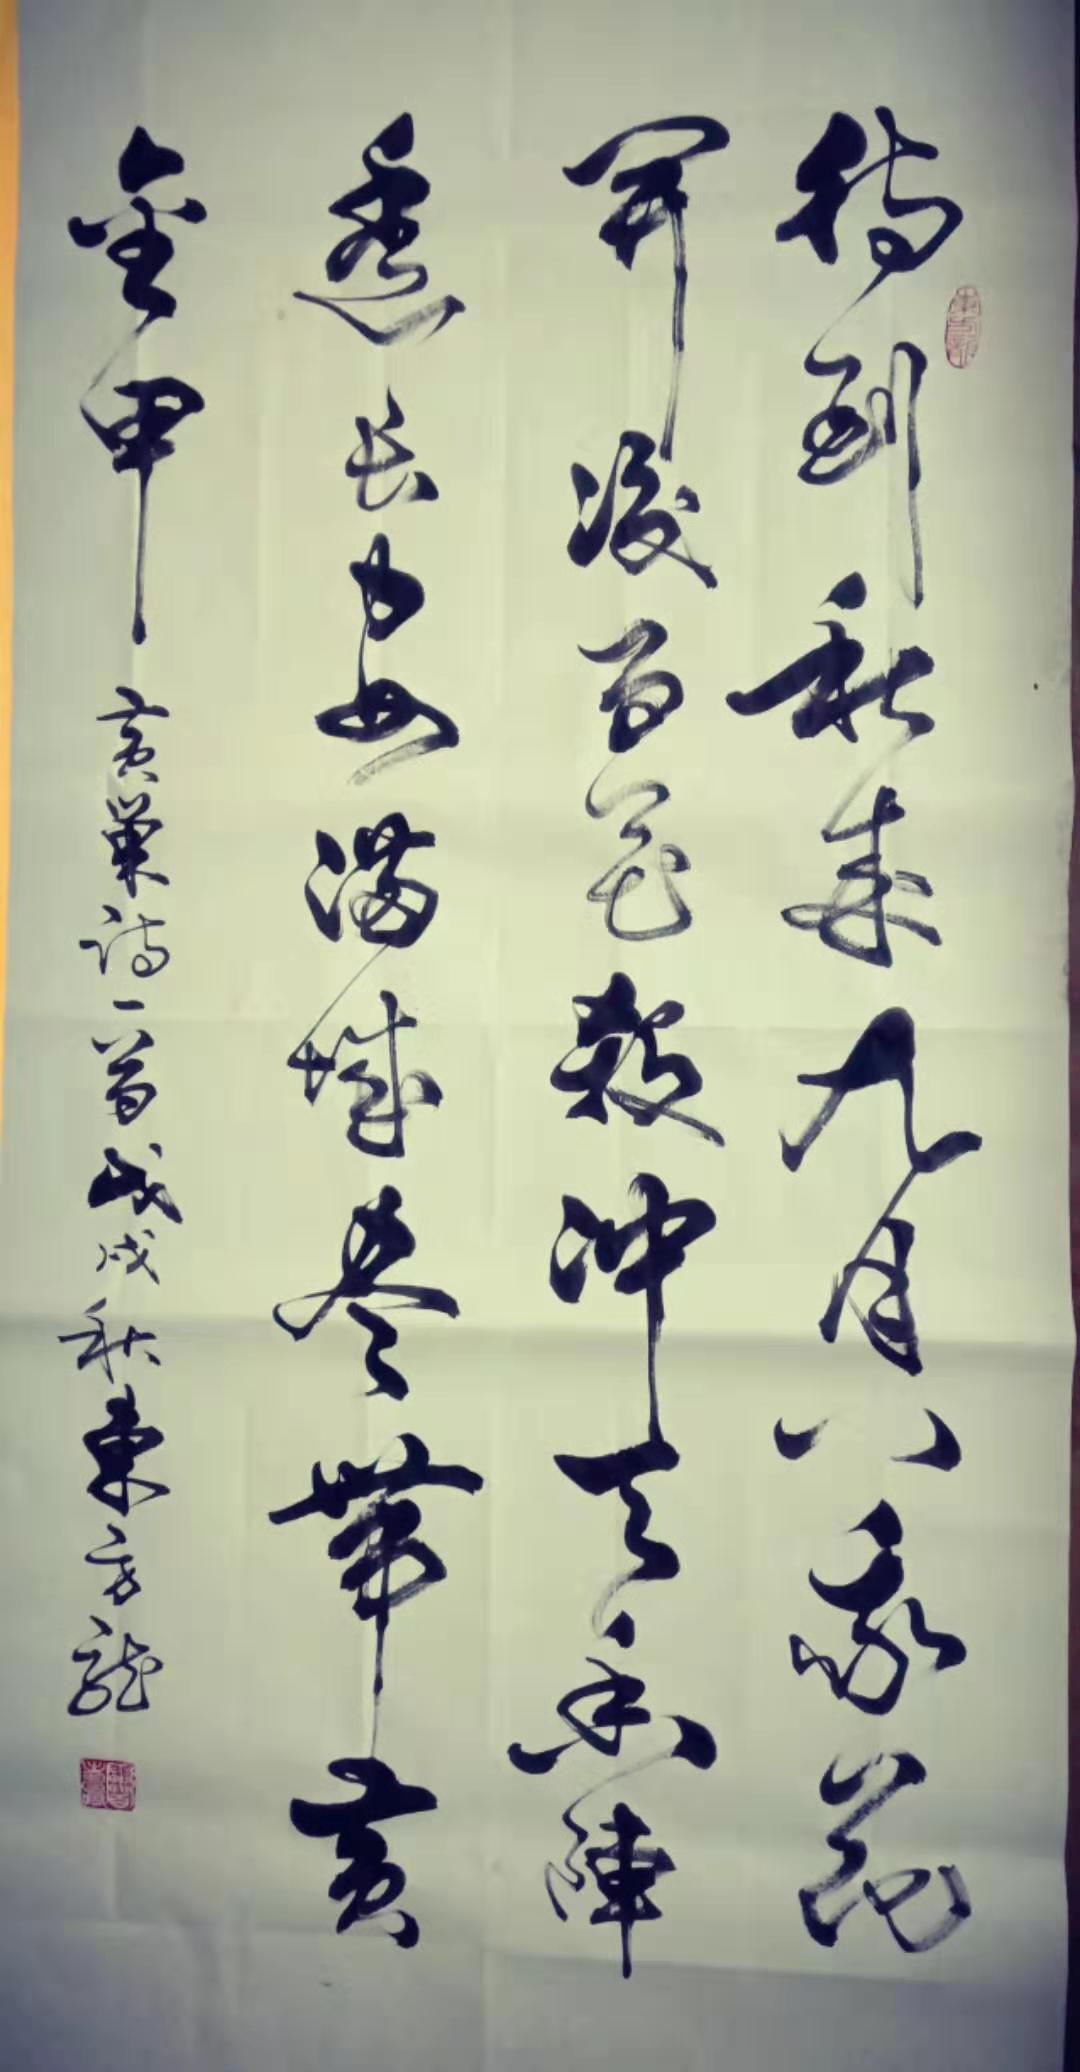 待到秋来九月八我花
開后百花殺冲天香陣
透长安满城尽带黄
金甲 黄巢詩一首戊戌秋東方龍